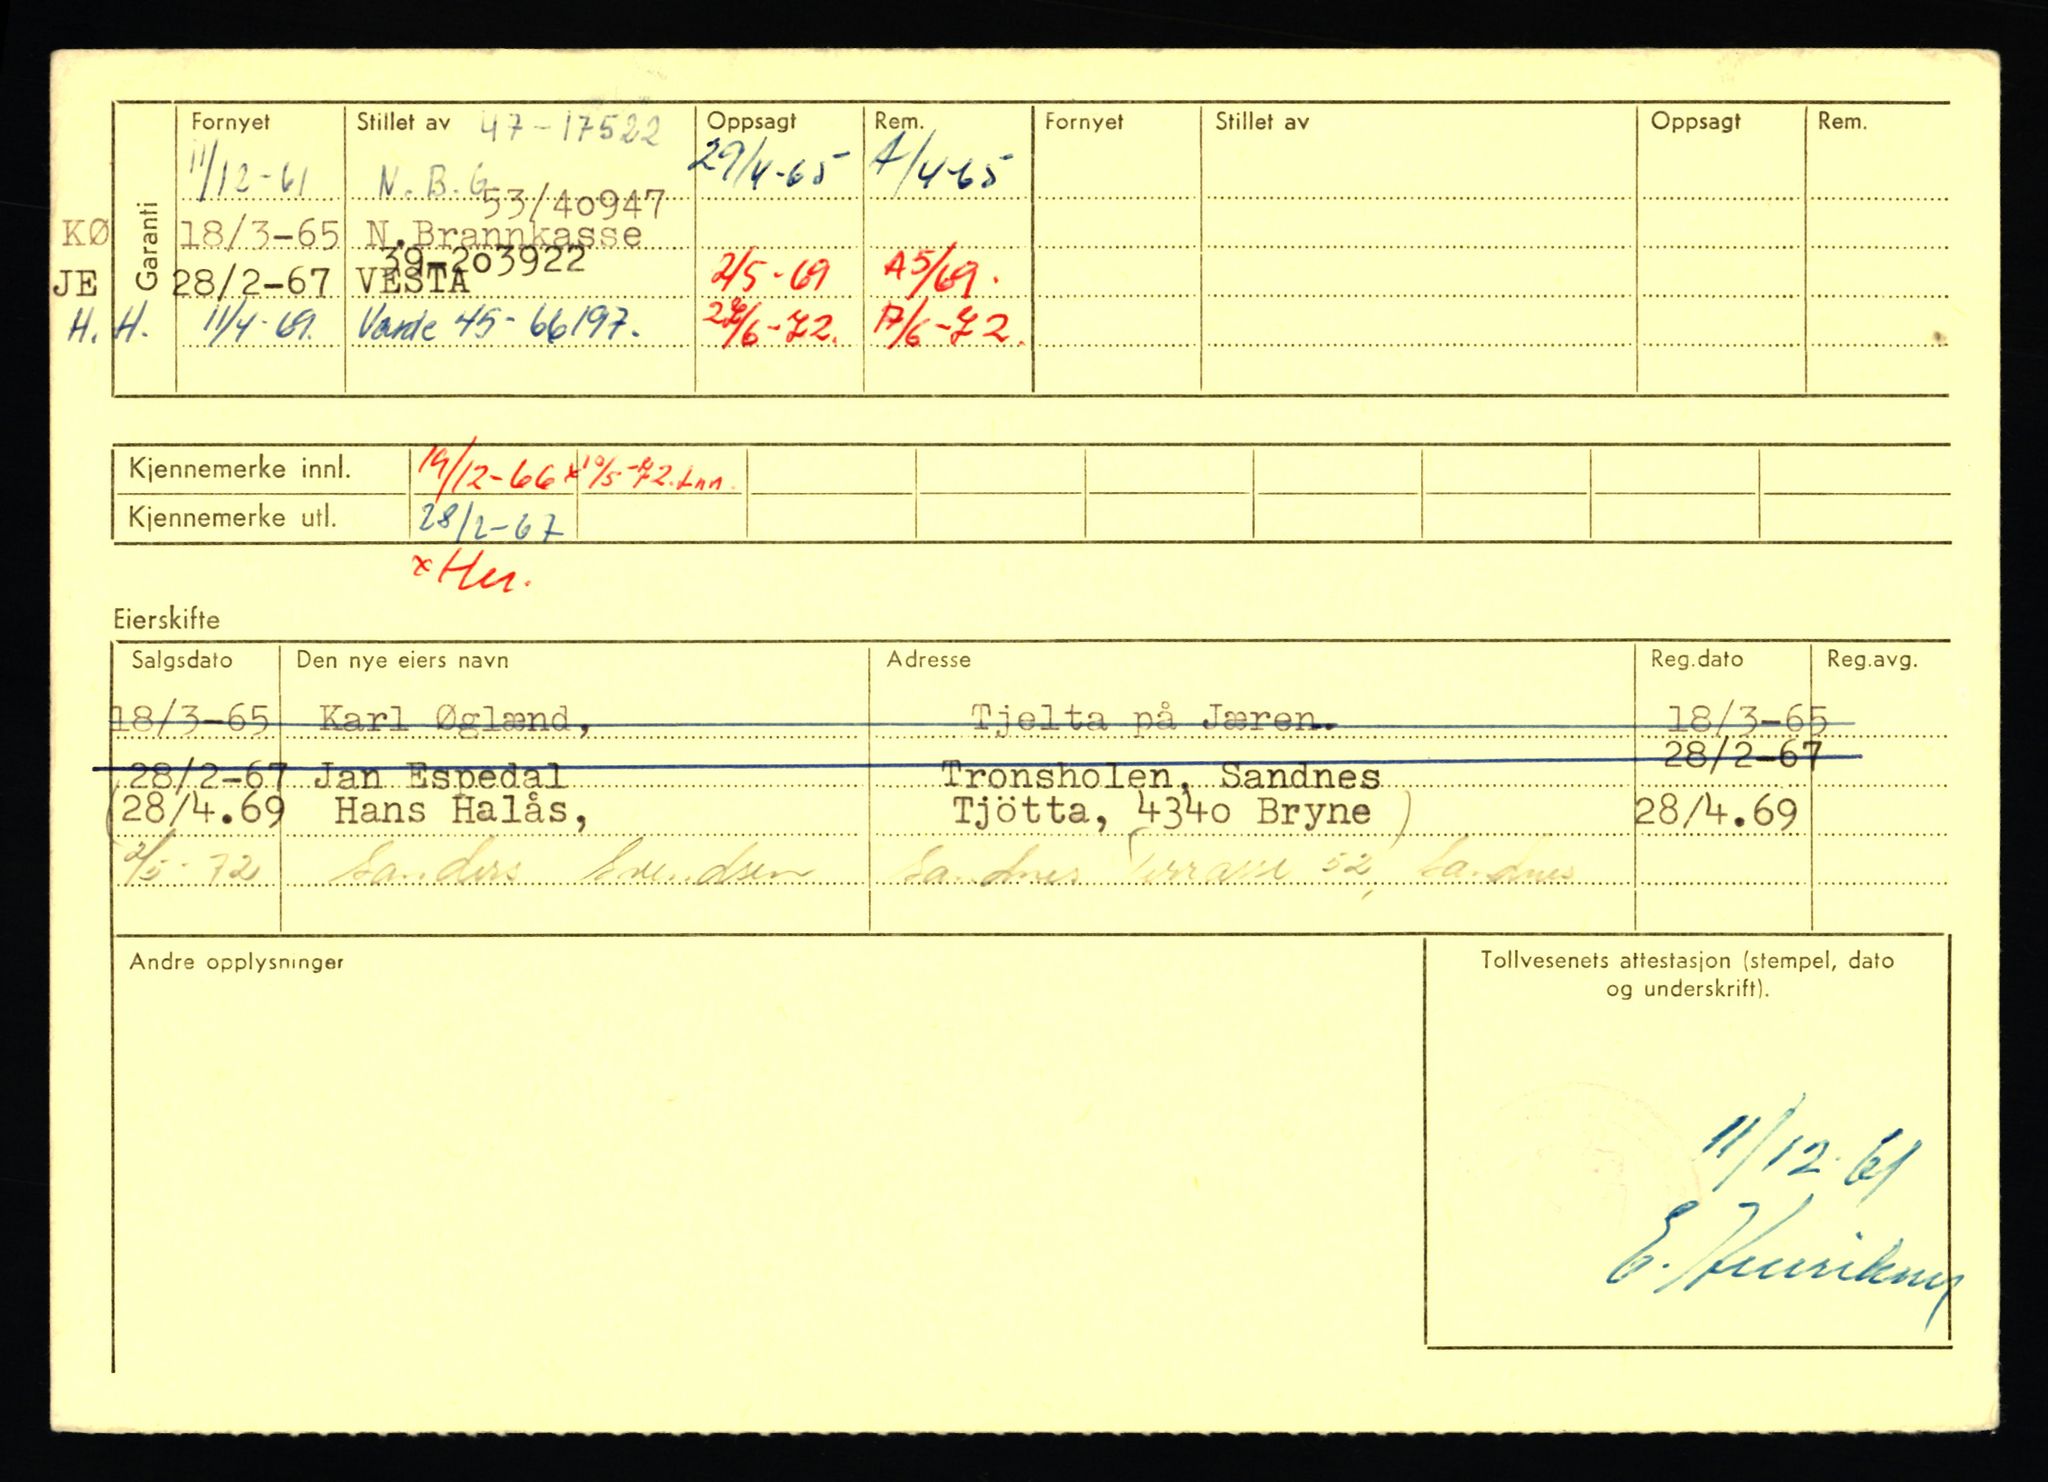 Garanti
Fornyet Stillet av 47-17522 Oppsagt Rem. Fornyet Stillet av Oppsagt Rem.
11/12-61 N.B.G 29/4-65 A/4-65
53/40947
KØ 18/3-65 N.Brannkasse
39-203922
JE 28/2-67 VESTA 2/5-69 A5/69.
H. H. 11/4-69. Varde 45-66197. /6-72. 17/6-72.
Kjennemerke innl. 19/12-66 x 10/5-72.
Kjennemerke utl. 28/2-67
x
Eierskifte
Salgsdato Den nye eiers navn Adresse Reg.dato Reg.avg.
18/3-65 Karl Øglænd, Tjelta på Jæren. 18/3-65
28/2-67 Jan Espedal Tronsholen, Sandnes 28/2-67
(28/4.69 Hans Halås, Tjötta, 4340 Bryne ) 28/4.69
2/5-72 Sanders Svendsen Sandnes Terrasse 52, Sandnes
Andre opplysninger
Tollvesenets attestasjon (stempel, dato
og underskrift).
11/12-61
E. Henriksen